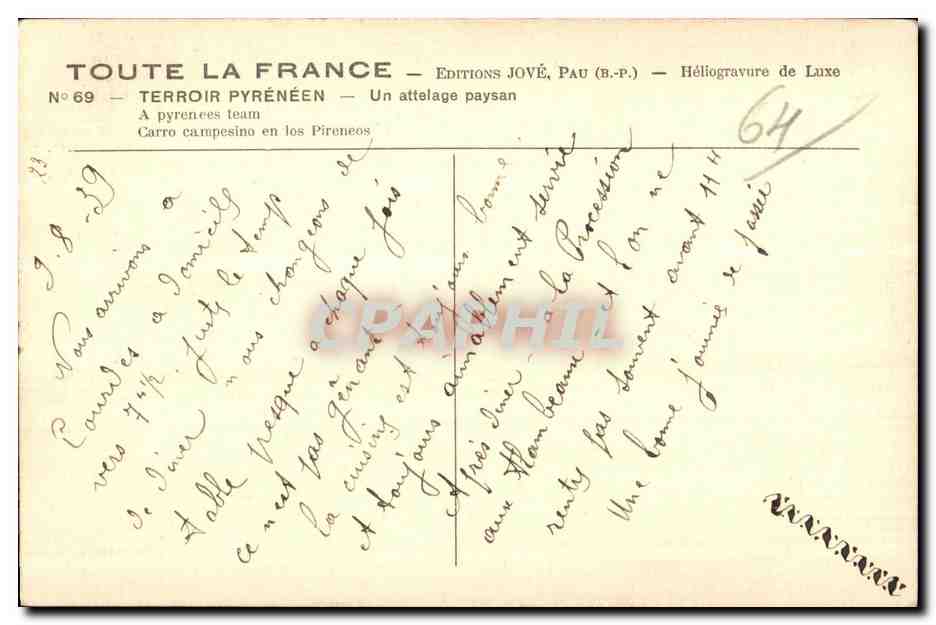 TOUTE LA FRANCE — EDITIONS JOVÉ, PAU (B.-P.) — Héliogravure de Luxe
No 69 — TERROIR PYRÉNÉEN — Un attelage paysan
A pyrenees team
Carro campesino en los Pireneos
64
23
9.8-39
Nous arrivons à
Lourdes à Domicile
vers 7h½ juste le temp
de Diner nous changeons de
table presque à chaque fois
ce n'est pas gênant
la cuising est toujours bonne
et toujours aimablement servie
Après diner à la Procession
aux Flambeaux et l'on ne
rentre pas souvent avant 11 H
Une bonne journée de passée
CPAPHIL